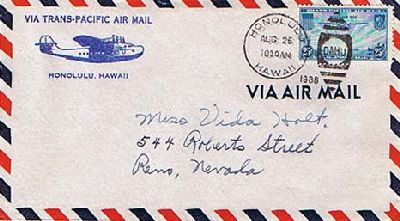 VIA TRANS-PACIFIC AIR MAIL
HONOLULU, HAWAII
HONOLULU
AUG 26
1030AM
HAWAII
1938
VIA AIR MAIL
Miss Vida Holt.
544 Roberts Street
Reno, Nevada